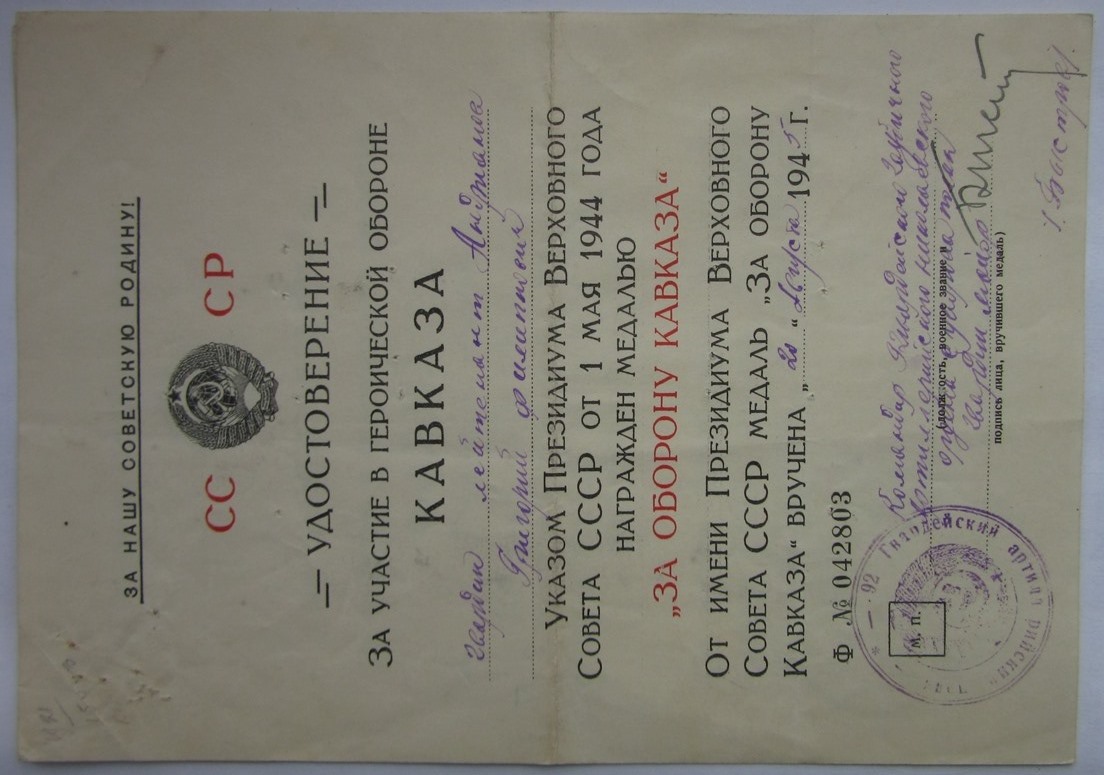 ЗА НАШУ СОВЕТСКУЮ РОДИНУ!
СС СР
УДОСТОВЕРЕНИЕ
ЗА УЧАСТИЕ В ГЕРОИЧЕСКОЙ ОБОРОНЕ
КАВКАЗА
гвардии лейтенант
Григорий Филиппович
УКАЗОМ ПРЕЗИДИУМА ВЕРХОВНОГО
СОВЕТА СССР ОТ 1 МАЯ 1944 ГОДА
НАГРАЖДЕН МЕДАЛЬЮ
„ЗА ОБОРОНУ КАВКАЗА“
ОТ ИМЕНИ ПРЕЗИДИУМА ВЕРХОВНОГО
СОВЕТА СССР МЕДАЛЬ „ЗА ОБОРОНУ
КАВКАЗА“ ВРУЧЕНА „20“ Августа 1945 Г.
Ф № 042803
Командир
Артиллерийского Николаевского
(должность, военное звание и
Гвардии
подпись лица, вручившего медаль)
М. П.
92 Гвардейский артиллерийский